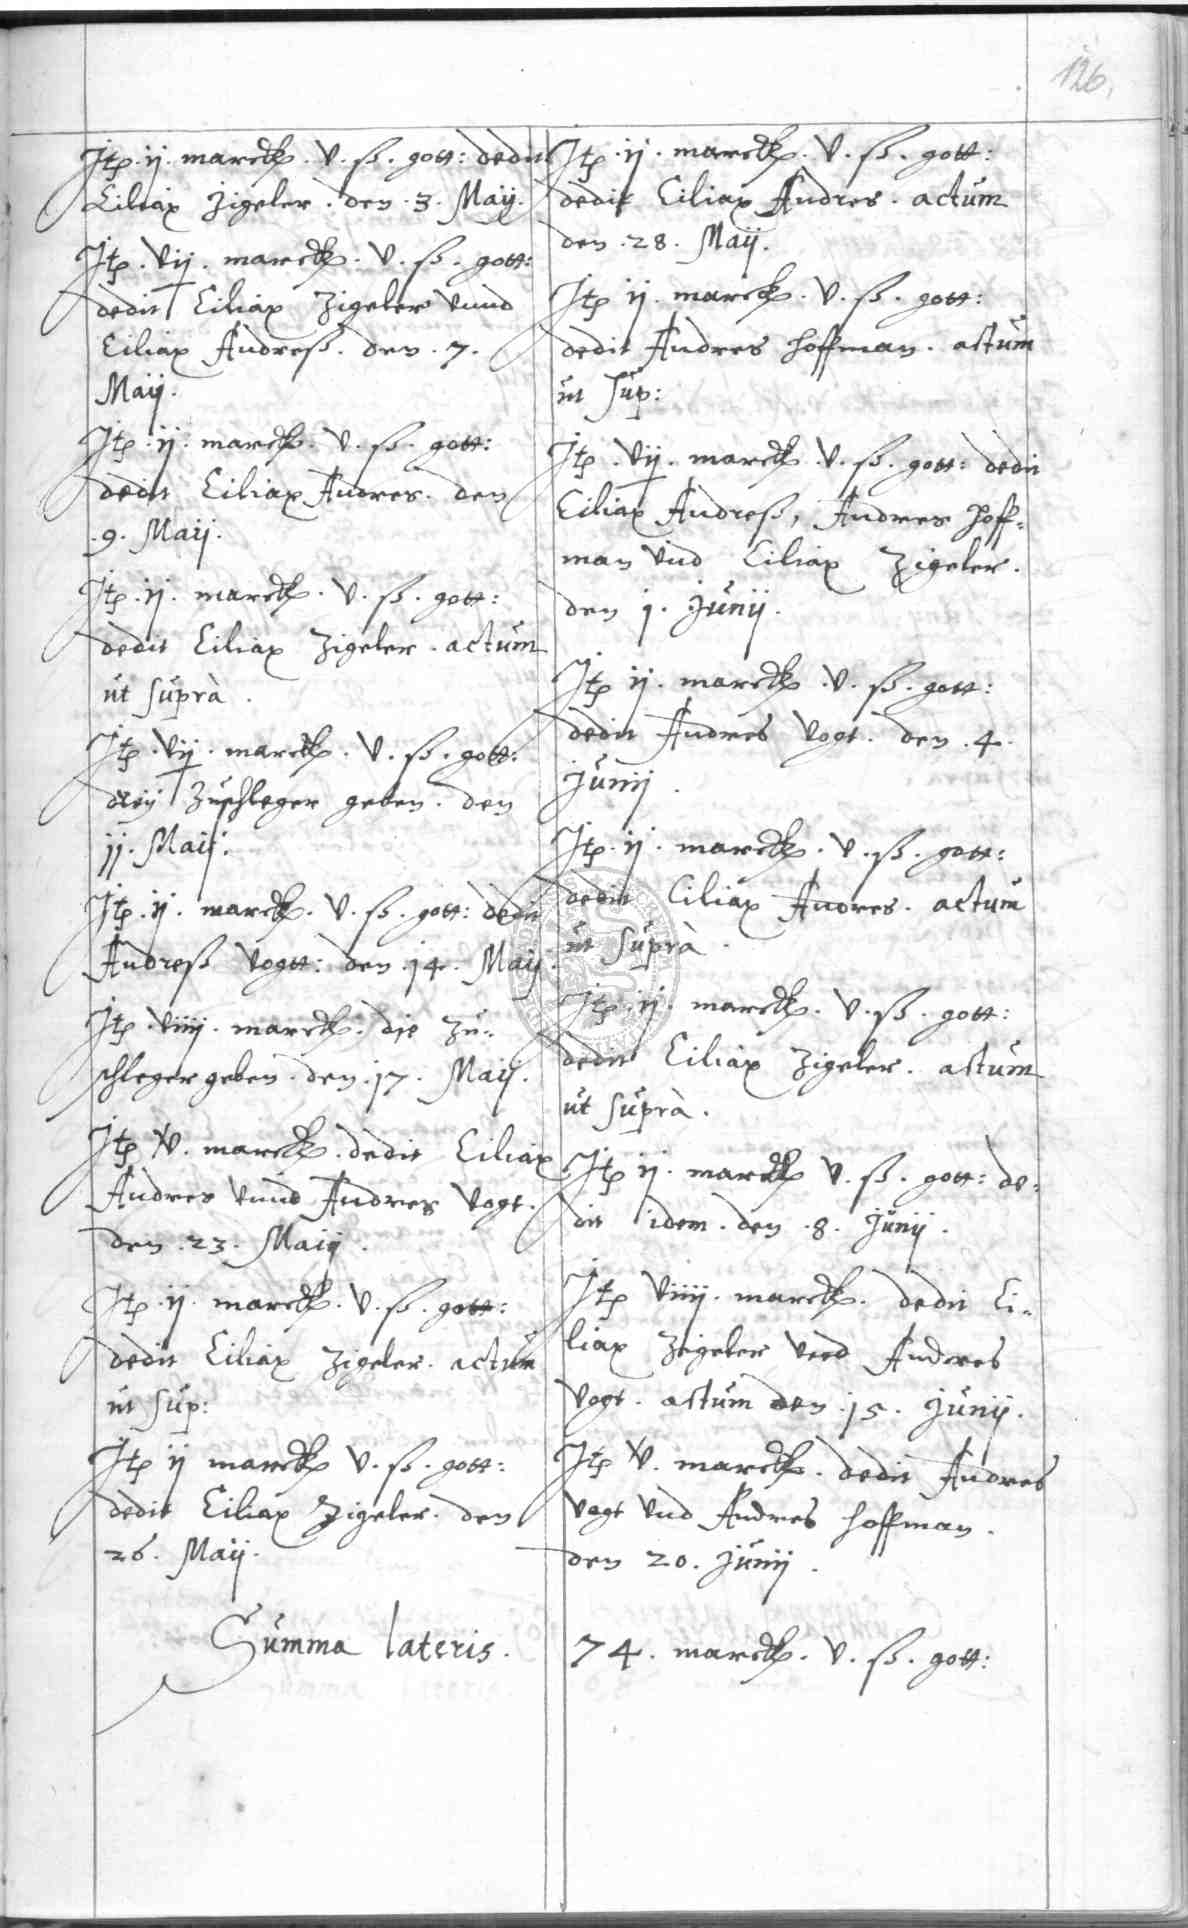 126.
Itp. ij. marckh. v. ß. gott: dedit
Ciliax Zigeler. den. 3. Maij.
Itp. vij. marckh. v. ß. gott:
dedit Ciliax Zigeler vnnd
Ciliax Andreß. den. 7.
Maij.
Itp. ij. marckh. v. ß. gott:
dedit Ciliax Andres. den
.9. Maij.
Itp. ij. marckh. v. ß. gott:
dedit Ciliax Zigeler. actum
ut suprà.
Itp. vij. marckh. v. ß. gott:
die Zuschleger geben. den
jj. Maij.
Itp. ij. marckh. v. ß. gott: dedit
Andreß Vogtt: den. j4. Maij.
Itp. viiij. marckh. die Zu-
schleger geben. den. j7. Maij.
Itp v. marckh. dedit Ciliax
Andres vnnd Andres Vogt.
den. 23. Maij.
Itp. ij. marckh. v. ß. gott:
dedit Ciliax Zigeler. actum
ut sup:
Itp ij marckh v. ß. gott:
dedit Ciliax Zigeler. den
26. Maij.
Itp. ij. marckh. v. ß. gott:
dedit Ciliax Andres. actum
den. 28. Maij.
Itp ij. marckh. v. ß. gott:
dedit Andres Hoffman. actum
ut sup:
Itp. vij. marckh. v. ß. gott: dedit
Ciliax Andreß, Andres Hoff-
man vnd Ciliax Zigeler.
den j. Junij.
Itp ij. marckh. v. ß. gott:
dedit Andres Vogt. den. 4.
Junij.
Itp. ij. marckh. v. ß. gott:
dedit Ciliax Andres. actum
ut suprà.
Itp. ij. marckh. v. ß. gott:
dedit Ciliax Zigeler. actum
ut suprà.
Itp ij. marckh v. ß. gott: de-
dit idem. den. 8. Junij.
Itp viiij. marckh. dedit Ci-
liax Zigeler vnd Andres
Vogt. actum den. j5. Junij.
Itp v. marckh. dedit Andres
Vogt vnd Andres Hoffman.
den 20. Junij.
Summa lateris. 74. marckh. v. ß. gott: